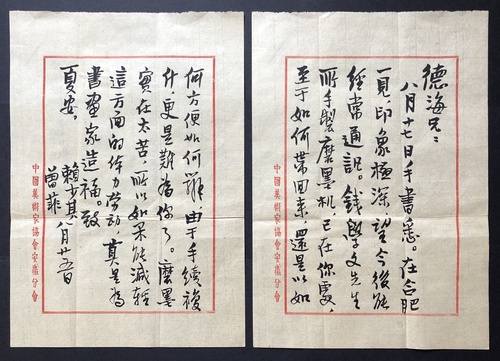 德海兄：
八月十七日手書悉。在合肥
一見，印象極深，望今後能
經常通訊。錢學文先生
所手製磨墨机已在你處，
至于如何帶回來，還是以如
中國美術家協會安徽分會
何方便如何辦，由于手續複
什，更是難為你了。磨墨
實在太苦，所以如果能減輕
這方面的体力劳动，真是為
書畫家造福。致
夏安。
賴少其
曾菲 八月廿五日
中國美術家協會安徽分會